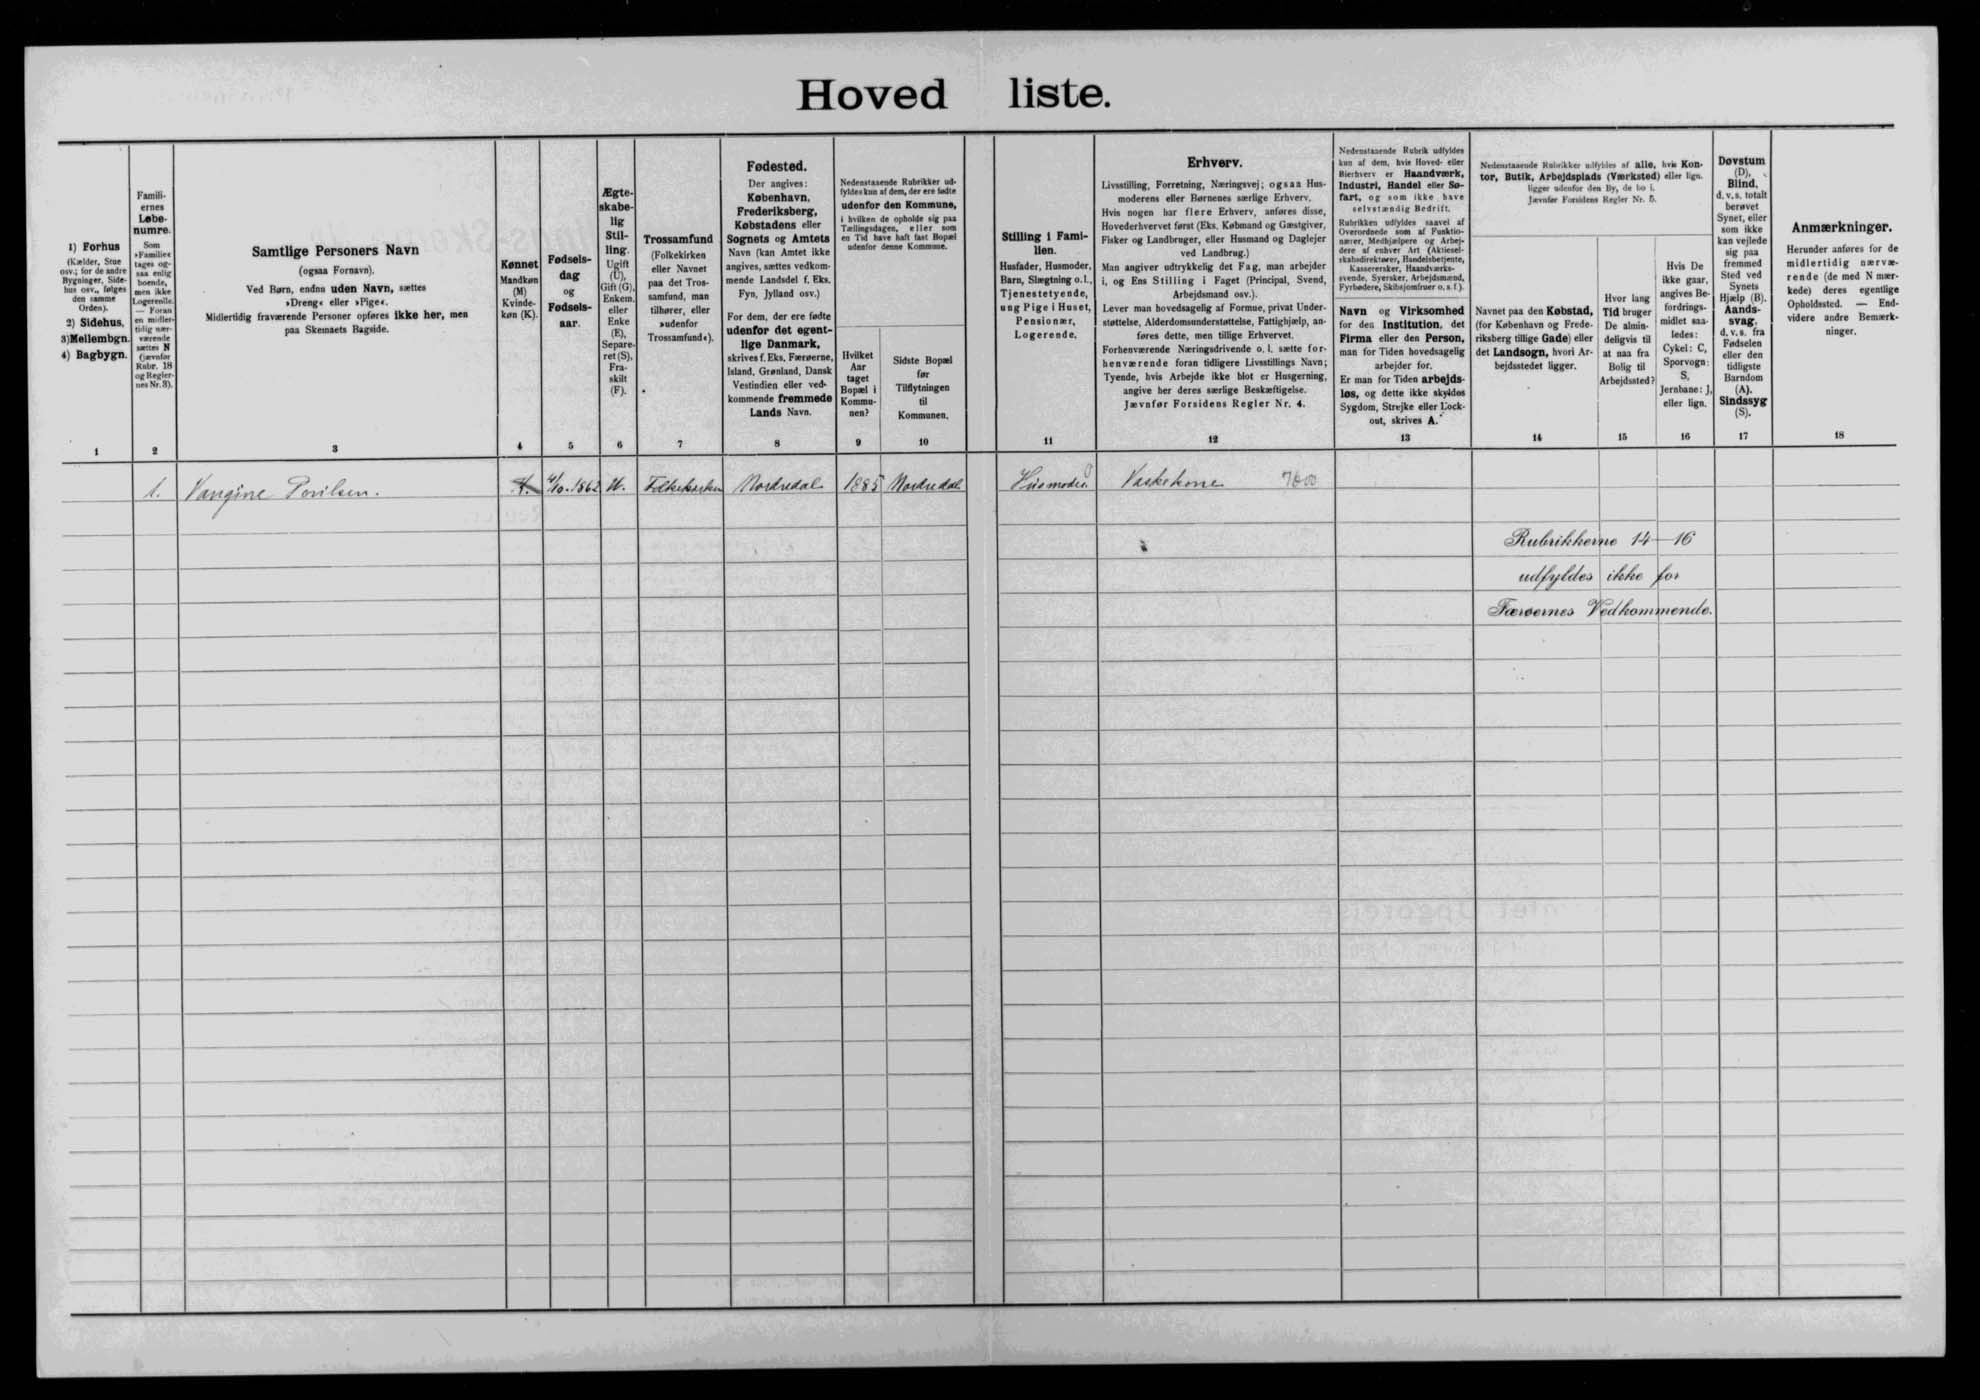 Hoved liste.
1) Forhus
(Kælder, Stue
osv.; for de andre
Bygninger, Side-
hus osv., følges
den samme
Orden).
2) Sidehus,
3) Mellembgn.
4) Bagbygn.
Famili-
ernes
Løbe-
numre.
Som
»Familie«
tages og-
saa enlig
boende,
men ikke
Logerende.
— Foran
en midler-
tidig nær-
værende
sættes N
(jævnfør
Rubr. 18
og Regler-
nes Nr. 3).
Samtlige Personers Navn
(ogsaa Fornavn).
Ved Børn, endnu uden Navn, sættes
»Dreng« eller »Pige«.
Midlertidig fraværende Personer opføres ikke her, men
paa Skemaets Bagside.
Kønnet
Mandkøn
(M)
Kvinde-
køn (K).
Fødsels-
dag
og
Fødsels-
aar.
Ægte-
skabe-
lig
Stil-
ling.
Ugift
(U),
Gift (G),
Enkem.
eller
Enke
(E),
Separe-
ret (S),
Fra-
skilt
(F).
Trossamfund
(Folkekirken
eller Navnet
paa det Tros-
samfund, man
tilhører, eller
»udenfor
Trossamfund«).
Fødested.
Der angives:
København,
Frederiksberg,
Købstadens eller
Sognets og Amtets
Navn (kan Amtet ikke
angives, sættes vedkom-
mende Landsdel f. Eks.
Fyn, Jylland osv.)
For dem, der ere fødte
udenfor det egent-
lige Danmark,
skrives f. Eks. Færøerne,
Island, Grønland, Dansk
Vestindien eller ved-
kommende fremmede
Lands Navn.
Nedenstaaende Rubrikker ud-
fyldes kun af dem, der ere fødte
udenfor den Kommune,
i hvilken de opholde sig paa
Tællingsdagen, eller som
en Tid have haft fast Bopæl
udenfor denne Kommune.
Hvilket
Aar
taget
Bopæl i
Kommu-
nen?
Sidste Bopæl
før
Tilflytningen
til
Kommunen.
Stilling i Fami-
lien.
Husfader, Husmoder,
Barn, Slægtning o.l.,
Tjenestetyende,
ung Pige i Huset,
Pensionær,
Logerende.
Erhverv.
Livsstilling, Forretning, Næringsvej; ogsaa Hus-
moderens eller Børnenes særlige Erhverv.
Hvis nogen har flere Erhverv, anføres disse,
Hovederhvervet først (Eks. Købmand og Gæstgiver,
Fisker og Landbruger, eller Husmand og Daglejer
ved Landbrug.)
Man angiver udtrykkelig det Fag, man arbejder
i, og Ens Stilling i Faget (Principal, Svend,
Arbejdsmand osv.).
Lever man hovedsagelig af Formue, privat Under-
støttelse, Alderdomsunderstøttelse, Fattighjælp, an-
føres dette, men tillige Erhvervet.
Forhenværende Næringsdrivende o. l. sætte for-
henværende foran tidligere Livsstillings Navn;
Tyende, hvis Arbejde ikke blot er Husgerning,
angive her deres særlige Beskæftigelse.
Jævnfør Forsidens Regler Nr. 4.
Nedenstaaende Rubrik udfyldes
kun af dem, hvis Hoved- eller
Bierhverv er Haandværk,
Industri, Handel eller Sø-
fart, og som ikke have
selvstændig Bedrift.
Rubrikken udfyldes saavel af
Overordnede som af Funktio-
nærer, Medhjælpere og Arbej-
dere af enhver Art (Aktiesel-
skabsdirektører, Handelsbetjente,
Kasserersker, Haandværks-
svende, Syersker, Arbejdsmænd,
Fyrbødere, Skibsjomfruer o. s. f.).
Navn og Virksomhed
for den Institution, det
Firma eller den Person,
man for Tiden hovedsagelig
arbejder for.
Er man for Tiden arbejds-
løs, og dette ikke skyldes
Sygdom, Strejke eller Lock-
out, skrives A.
Nedenstaaende Rubrikker udfyldes af alle, hvis Kon-
tor, Butik, Arbejdsplads (Værksted) eller lign.
ligger udenfor den By, de bo i.
Jævnfør Forsidens Regler Nr. 5.
Navnet paa den Købstad,
(for København og Frede-
riksberg tillige Gade) eller
det Landsogn, hvori Ar-
bejdsstedet ligger.
Hvor lang
Tid bruger
De almin-
deligvis til
at naa fra
Bolig til
Arbejdssted?
Hvis De
ikke gaar,
angives Be-
fordrings-
midlet saa-
ledes:
Cykel: C,
Sporvogn:
S,
Jernbane: J,
eller lign.
Døvstum
(D),
Blind,
d. v. s. totalt
berøvet
Synet, eller
som ikke
kan vejlede
sig paa
fremmed
Sted ved
Synets
Hjælp (B).
Aands-
svag,
d. v. s. fra
Fødselen
eller den
tidligste
Barndom
(A),
Sindssyg
(S).
Anmærkninger.
Herunder anføres for de
midlertidig nærvæ-
rende (de med N mær-
kede) deres egentlige
Opholdssted. — End-
videre andre Bemærk-
ninger.
1 2 3 4 5 6 7 8 9 10 11 12 13 14 15 16 17 18
1. Vangine Poulsen. K. 4/10.1862 U. Folkekirken Nordredal 1885 Nordredal Husmoder Vaskekone 7600
Rubrikkerne 14—16
udfyldes ikke for
Færøernes Vedkommende.